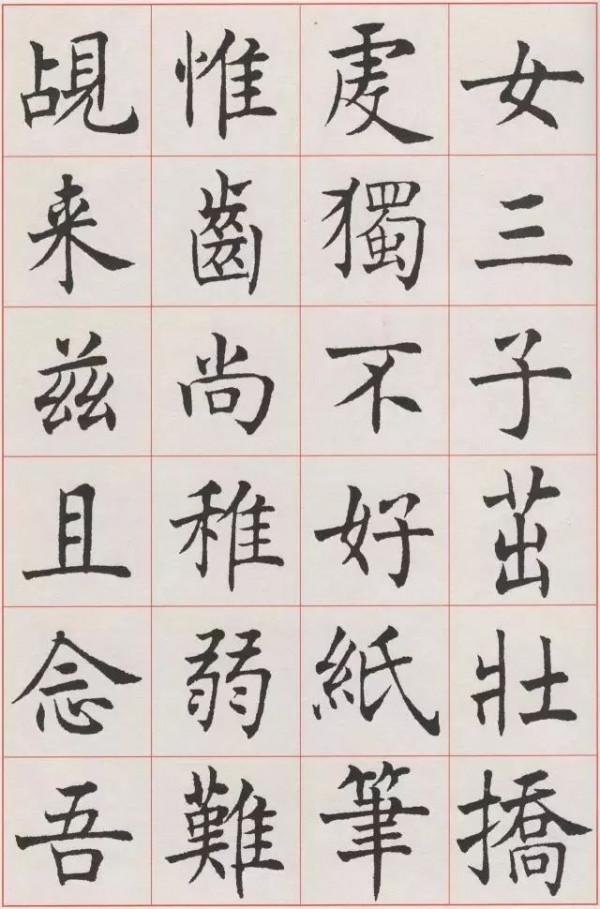 女三子茁壯撟
處獨不好紙筆
惟齒尚稚弱難
覘来兹且念吾